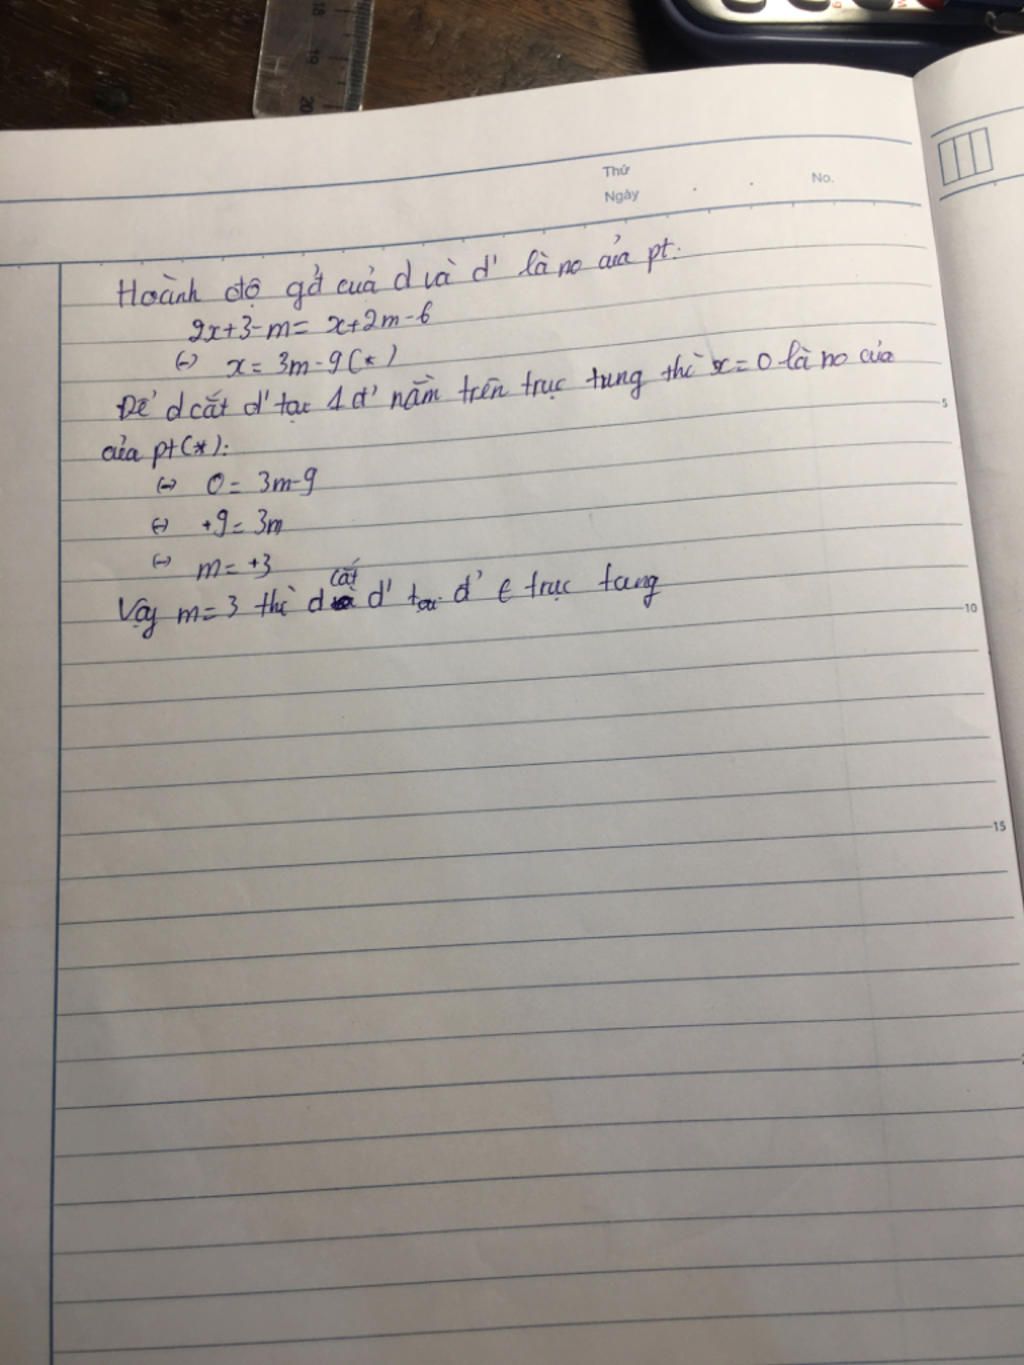 18
19
20
Thứ
Ngày . . No.
Hoành độ gđ của d và d' là no của pt:
2x+3-m= x+2m-6
(-) x= 3m-9(*)
Để d cắt d' tại 1 đ' nằm trên trục tung thì x=0 là no của
của pt(*):
(-) 0= 3m-9
(-) +9= 3m
(-) m= +3
Vậy m=3 thì d cắt d' tại đ' ∈ trục tung
5
10
15